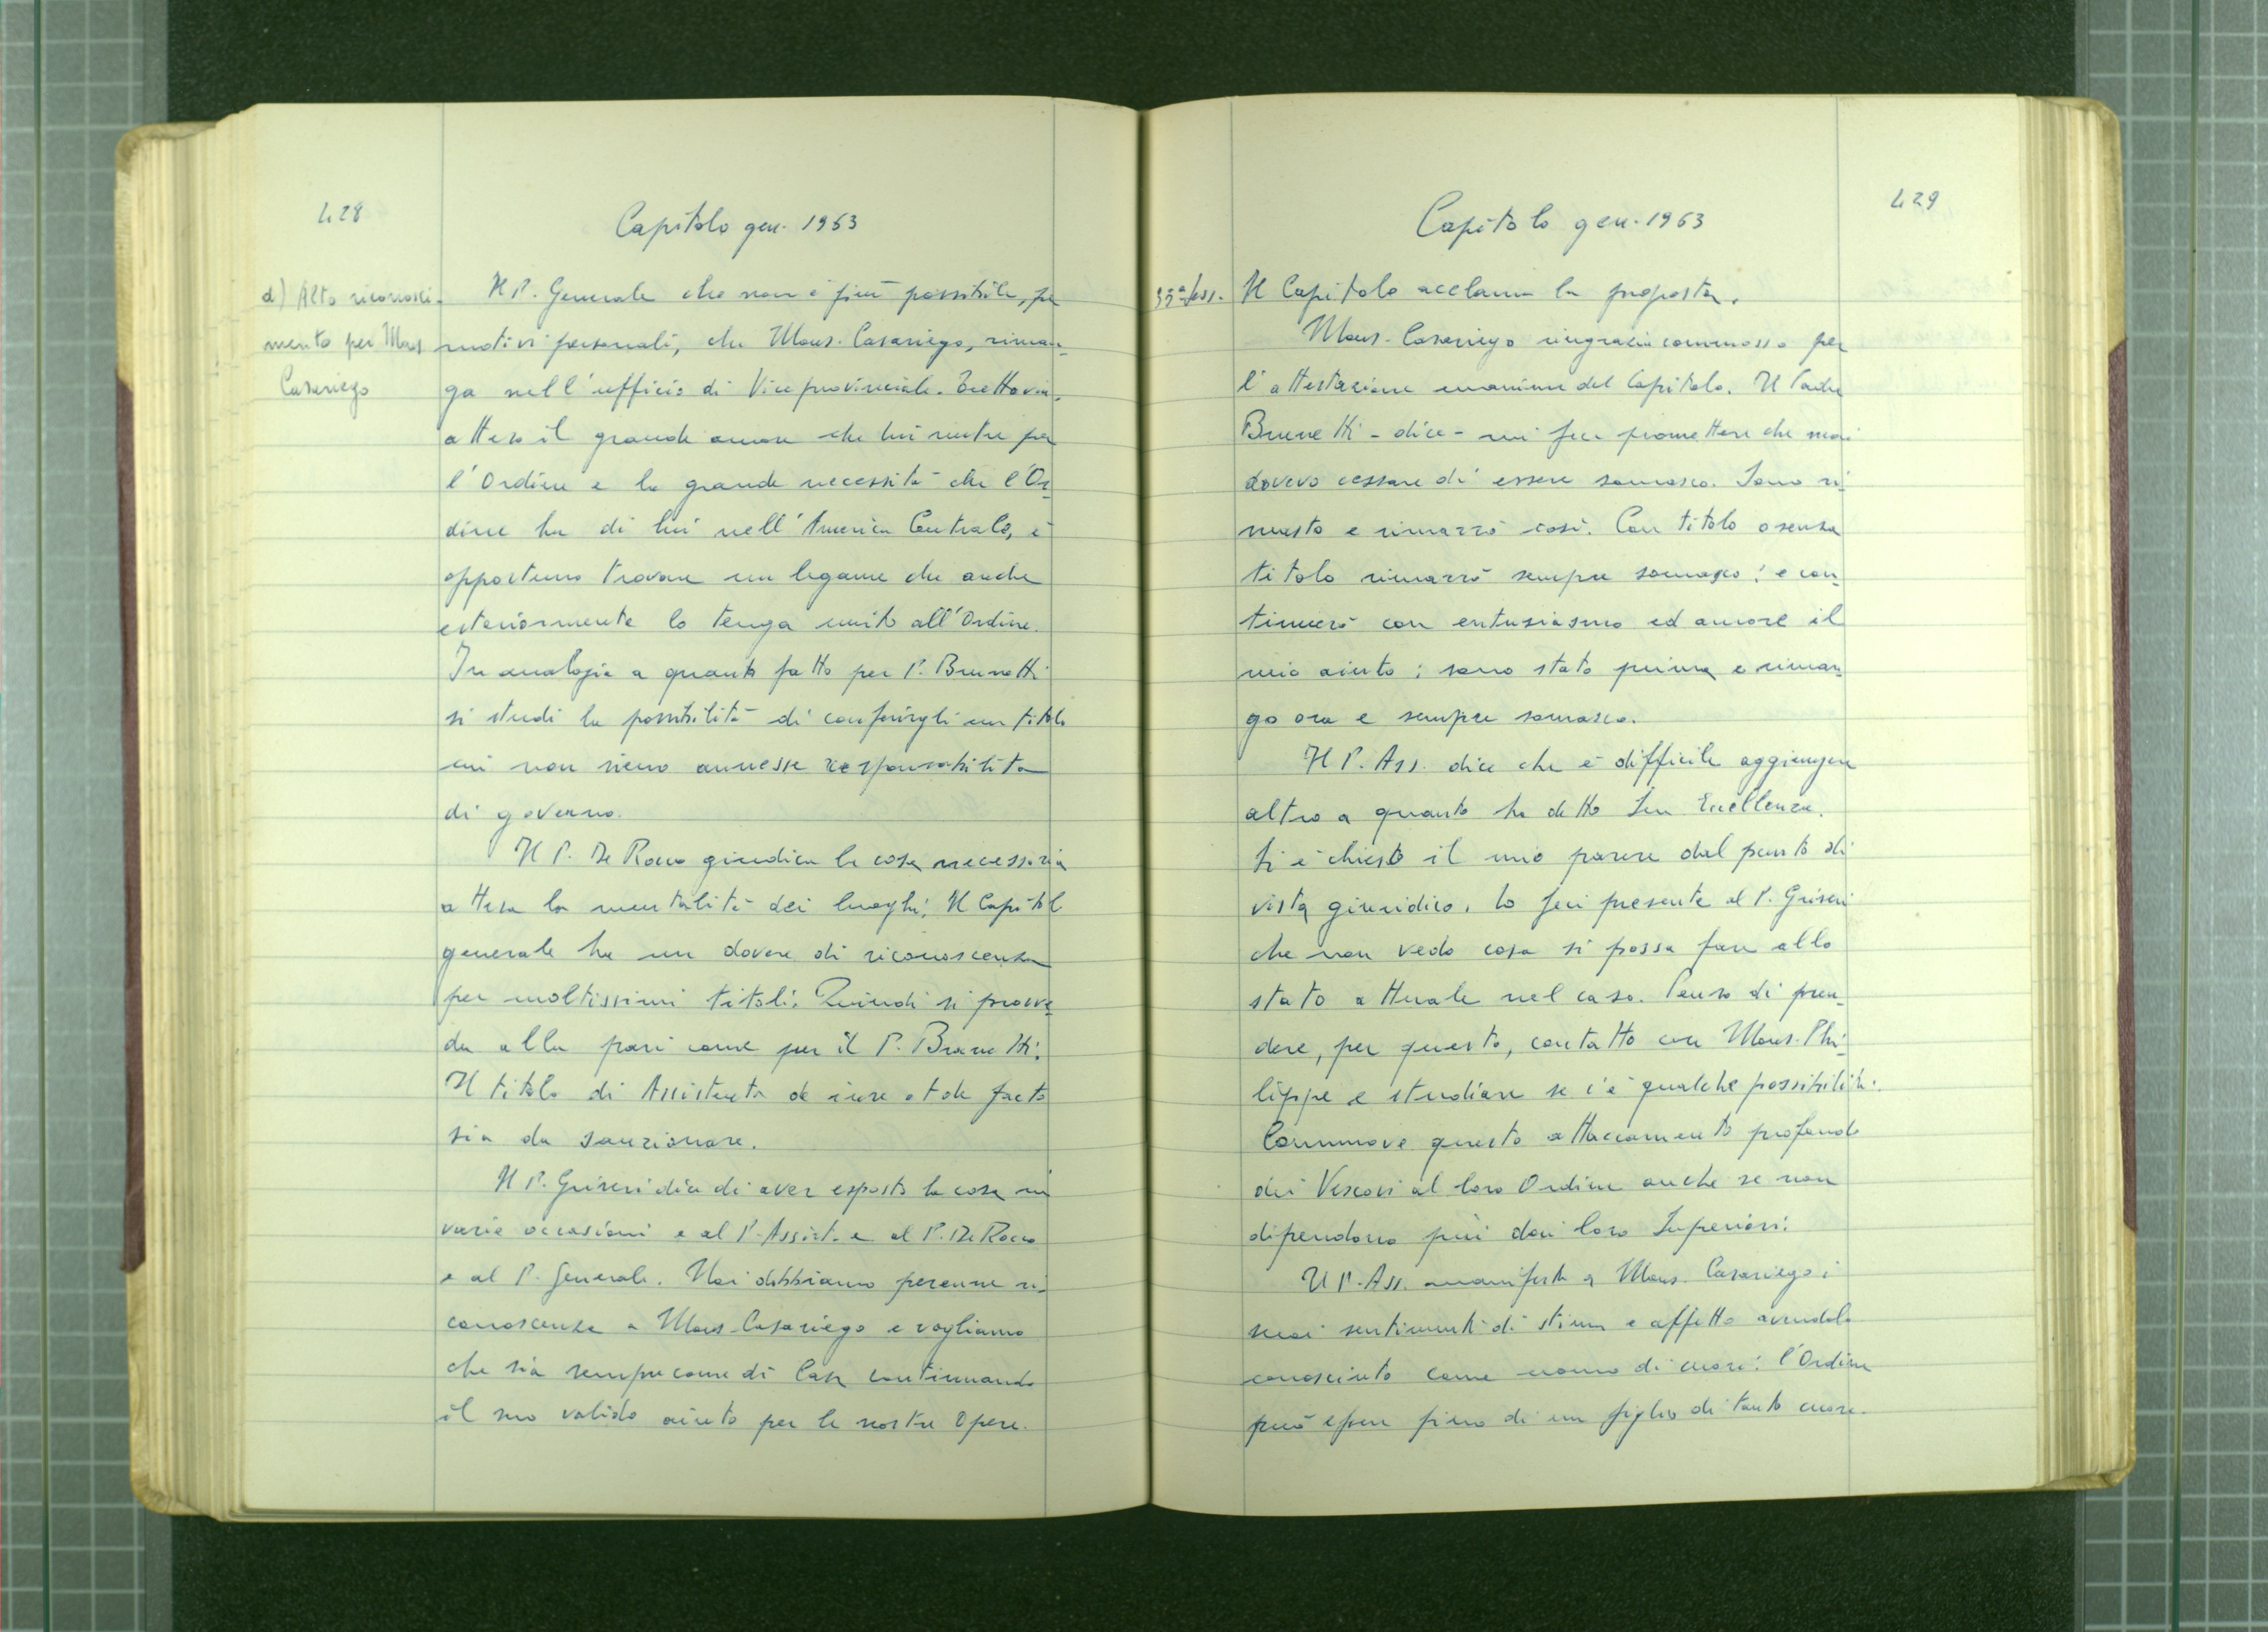 428
Capitolo gen. 1963
d) Alto riconosci-
mento per Mons
Casariego
Il P. Generale che non è più possibile, per
motivi personali, che Mons. Casariego, riman-
ga nell'ufficio di Vice provinciale. Tuttavia,
atteso il grande amore che lui nutre per
l'Ordine e la grande necessità che l'Or-
dine ha di lui nell'America Centrale, è
opportuno trovare un legame che anche
esteriormente lo tenga unito all'Ordine.
In analogia a quanto fatto per P. Brunetti
si studi la possibilità di conferirgli un titolo
cui non siano annesse responsabilità
di governo.
Il P. De Rocco giudica la cosa necessaria
attesa la mentalità dei luoghi. Il Capitol
generale ha un dovere di riconoscenza
per moltissimi titoli. Quindi si provve-
da alla pari come per il P. Brunetti.
Il titolo di Assistente de iure et de facto
sia da sanzionare.
Il P. Griseri dice di aver esposto la cosa in
varie occasioni e al P. Assist. e al P. De Rocco
e al P. Generale. Noi dobbiamo perenne ri-
conoscenza a Mons. Casariego e vogliamo
che sia sempre come di Casa continuando
il suo valido aiuto per le nostre Opere.
429
Capitolo gen. 1963
35ª sess.
Il Capitolo acclama la proposta.
Mons. Casariego ringrazia commosso per
l'attestazione unanime del Capitolo. Il Padre
Brunetti - dice - mi fece promettere che mai
dovevo cessare di essere somasco. Sono ri-
masto e rimarrò così. Con titolo o senza
titolo rimarrò sempre somasco: e con-
tinuerò con entusiasmo ed amore il
mio aiuto; sono stato prima e riman-
go ora e sempre somasco.
Il P. Ass. dice che è difficile aggiungere
altro a quanto ha detto Sua Eccellenza.
Si è chiesto il mio parere dal punto di
vista giuridico. Io feci presente al P. Griseri
che non vedo cosa si possa fare allo
stato attuale nel caso. Penso di pren-
dere, per questo, contatto con Mons. Phi-
lippe e studiare se c'è qualche possibilità.
Commuove questo attaccamento profondo
dei Vescovi al loro Ordine anche se non
dipendono più dai loro Superiori.
Il P. Ass. manifesta a Mons. Casariego i
suoi sentimenti di stima e affetto avendolo
conosciuto come uomo di cuore: l'Ordine
può essere fiero di un figlio di tanto cuore.